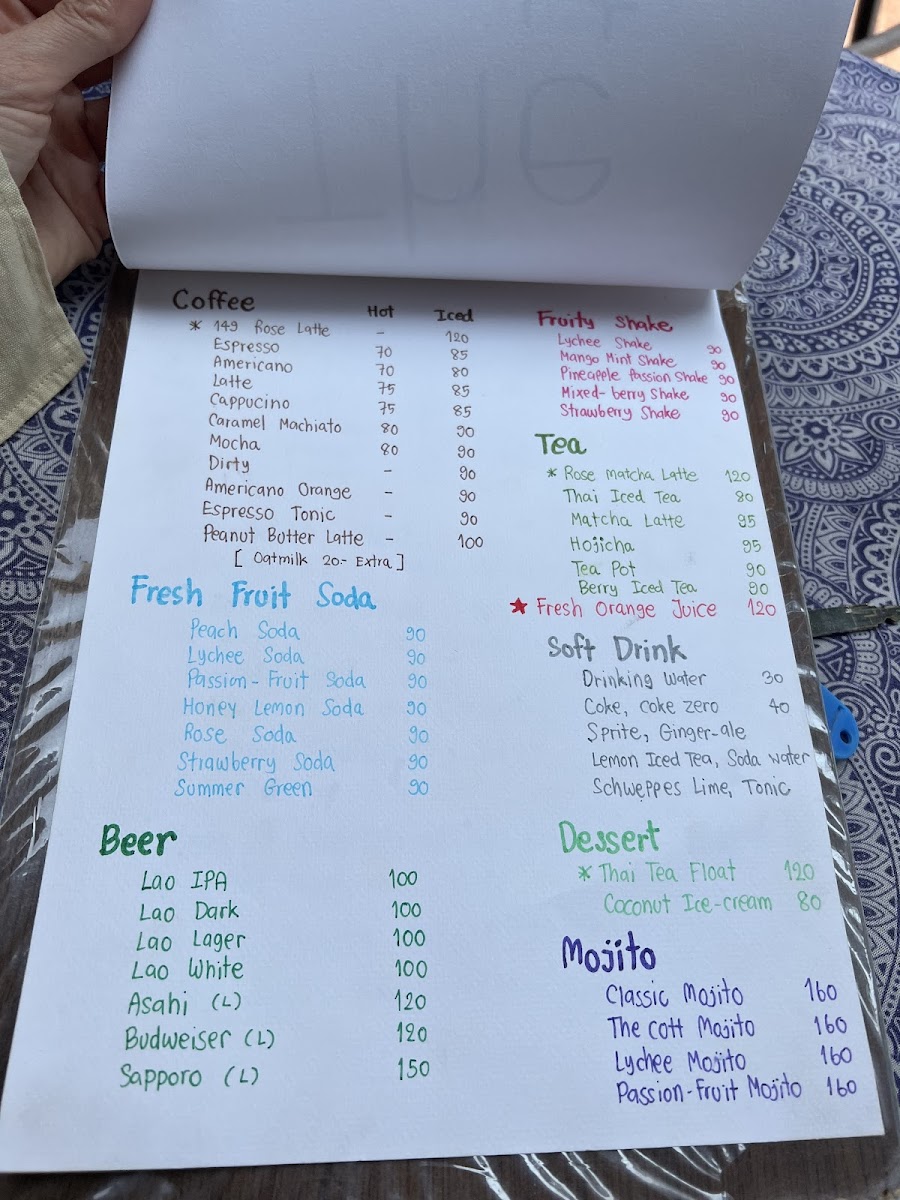 Coffee Hot Iced
* 149 Rose Latte - 120
Espresso 70 85
Americano 70 80
Latte 75 85
Cappucino 75 85
Caramel Machiato 80 90
Mocha 80 90
Dirty - 90
Americano Orange - 90
Espresso Tonic - 90
Peanut Butter Latte - 100
[ Oatmilk 20.- Extra ]
Fresh Fruit Soda
Peach Soda 90
Lychee Soda 90
Passion-Fruit Soda 90
Honey Lemon Soda 90
Rose Soda 90
Strawberry Soda 90
Summer Green 90
Beer
Lao IPA 100
Lao Dark 100
Lao Lager 100
Lao White 100
Asahi (L) 120
Budweiser (L) 120
Sapporo (L) 150
Fruity Shake
Lychee Shake 90
Mango Mint Shake 90
Pineapple Passion Shake 90
Mixed-berry Shake 90
Strawberry Shake 90
Tea
* Rose Matcha Latte 120
Thai Iced Tea 80
Matcha Latte 95
Hojicha 95
Tea Pot 90
Berry Iced Tea 90
★ Fresh Orange Juice 120
Soft Drink
Drinking Water 30
Coke, coke zero 40
Sprite, Ginger-ale
Lemon Iced Tea, Soda water
Schweppes Lime, Tonic
Dessert
* Thai Tea Float 120
Coconut Ice-cream 80
Mojito
Classic Mojito 160
The cott Mojito 160
Lychee Mojito 160
Passion-Fruit Mojito 160